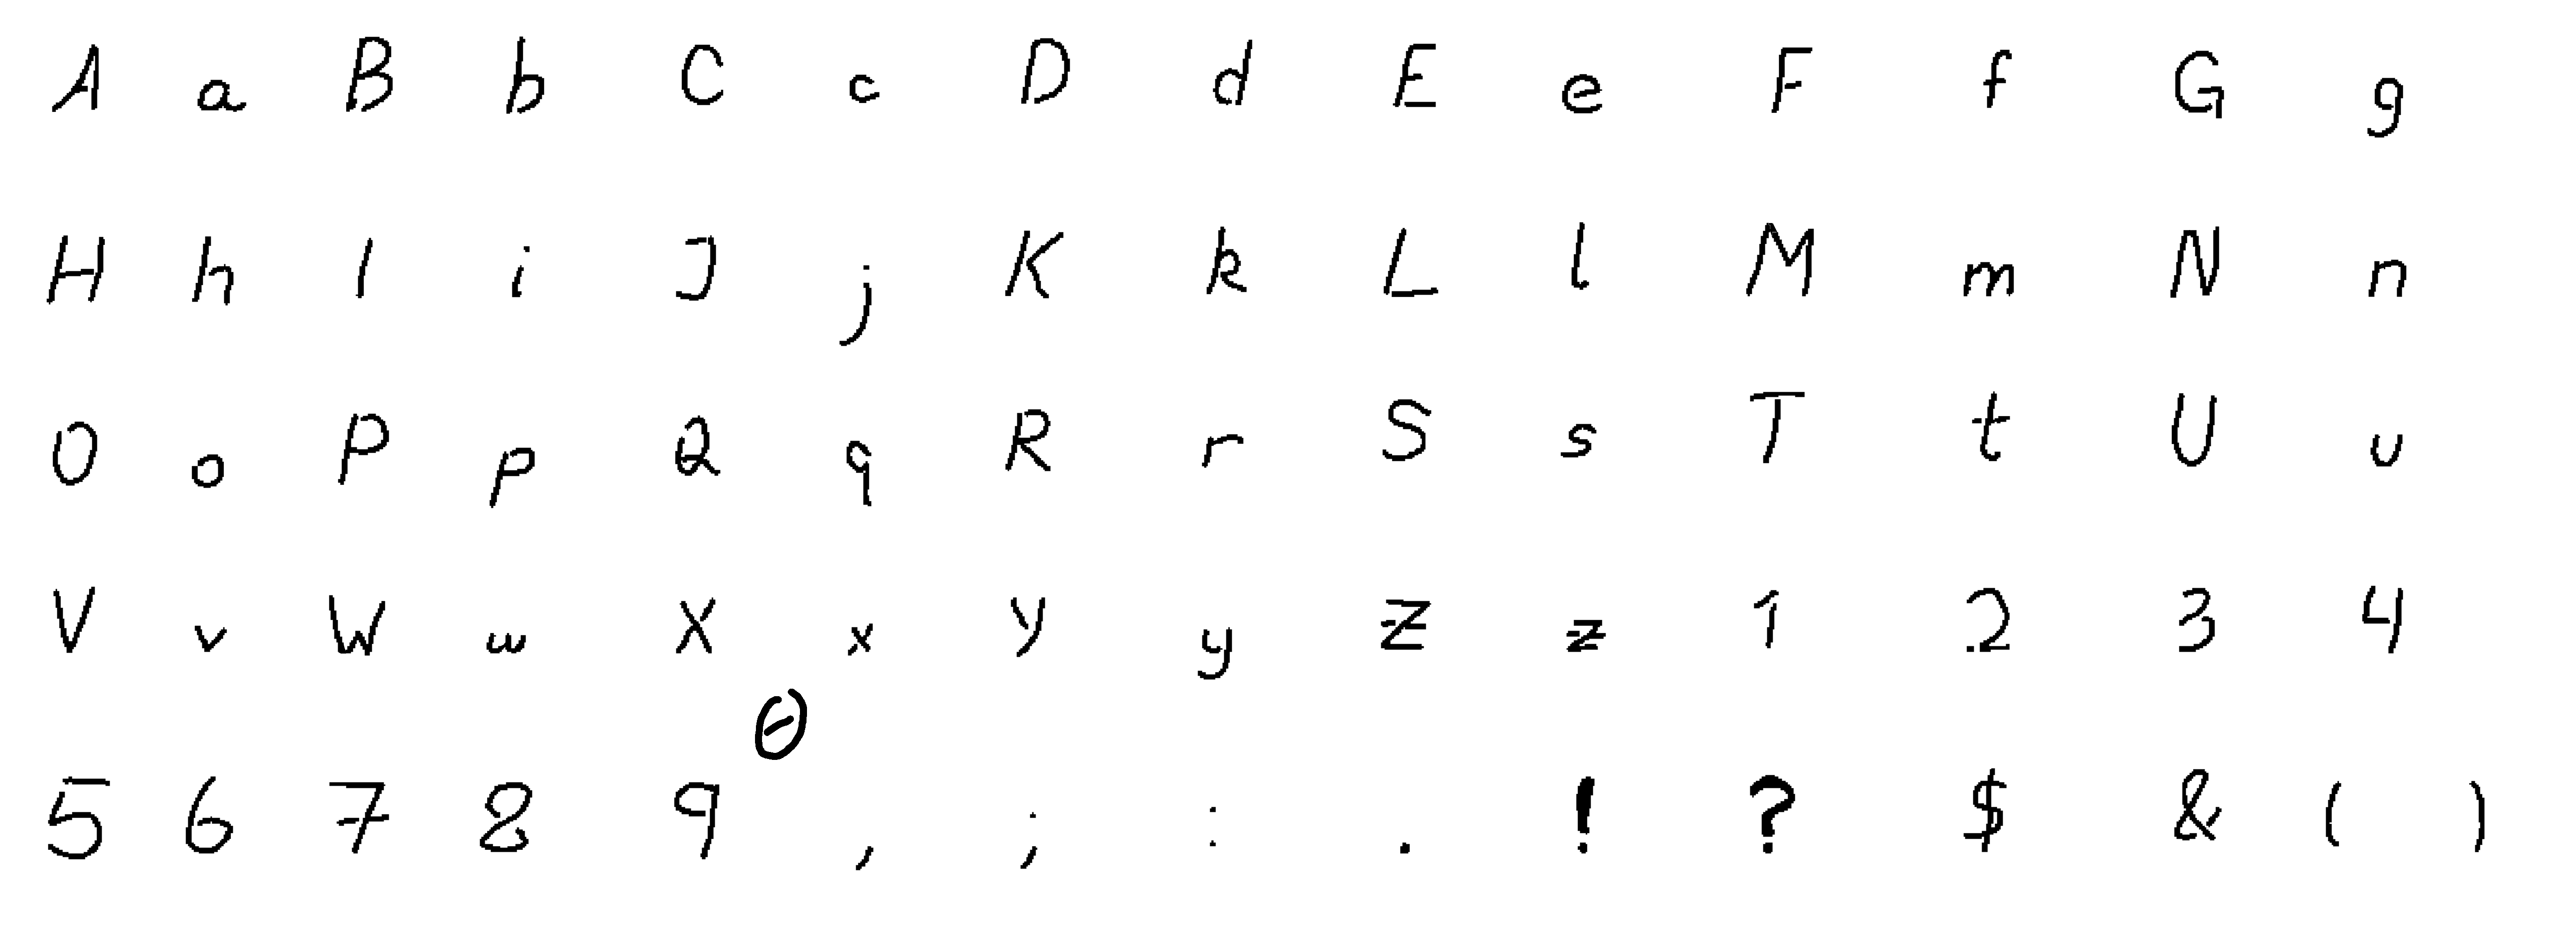 A a B b C c D d E e F f G g
H h I i J j K k L l M m N n
O o P p Q q R r S s T t U u
V v W w X x Y y Z z 1 2 3 4
0
5 6 7 8 9 , ; : . ! ? $ & ( )